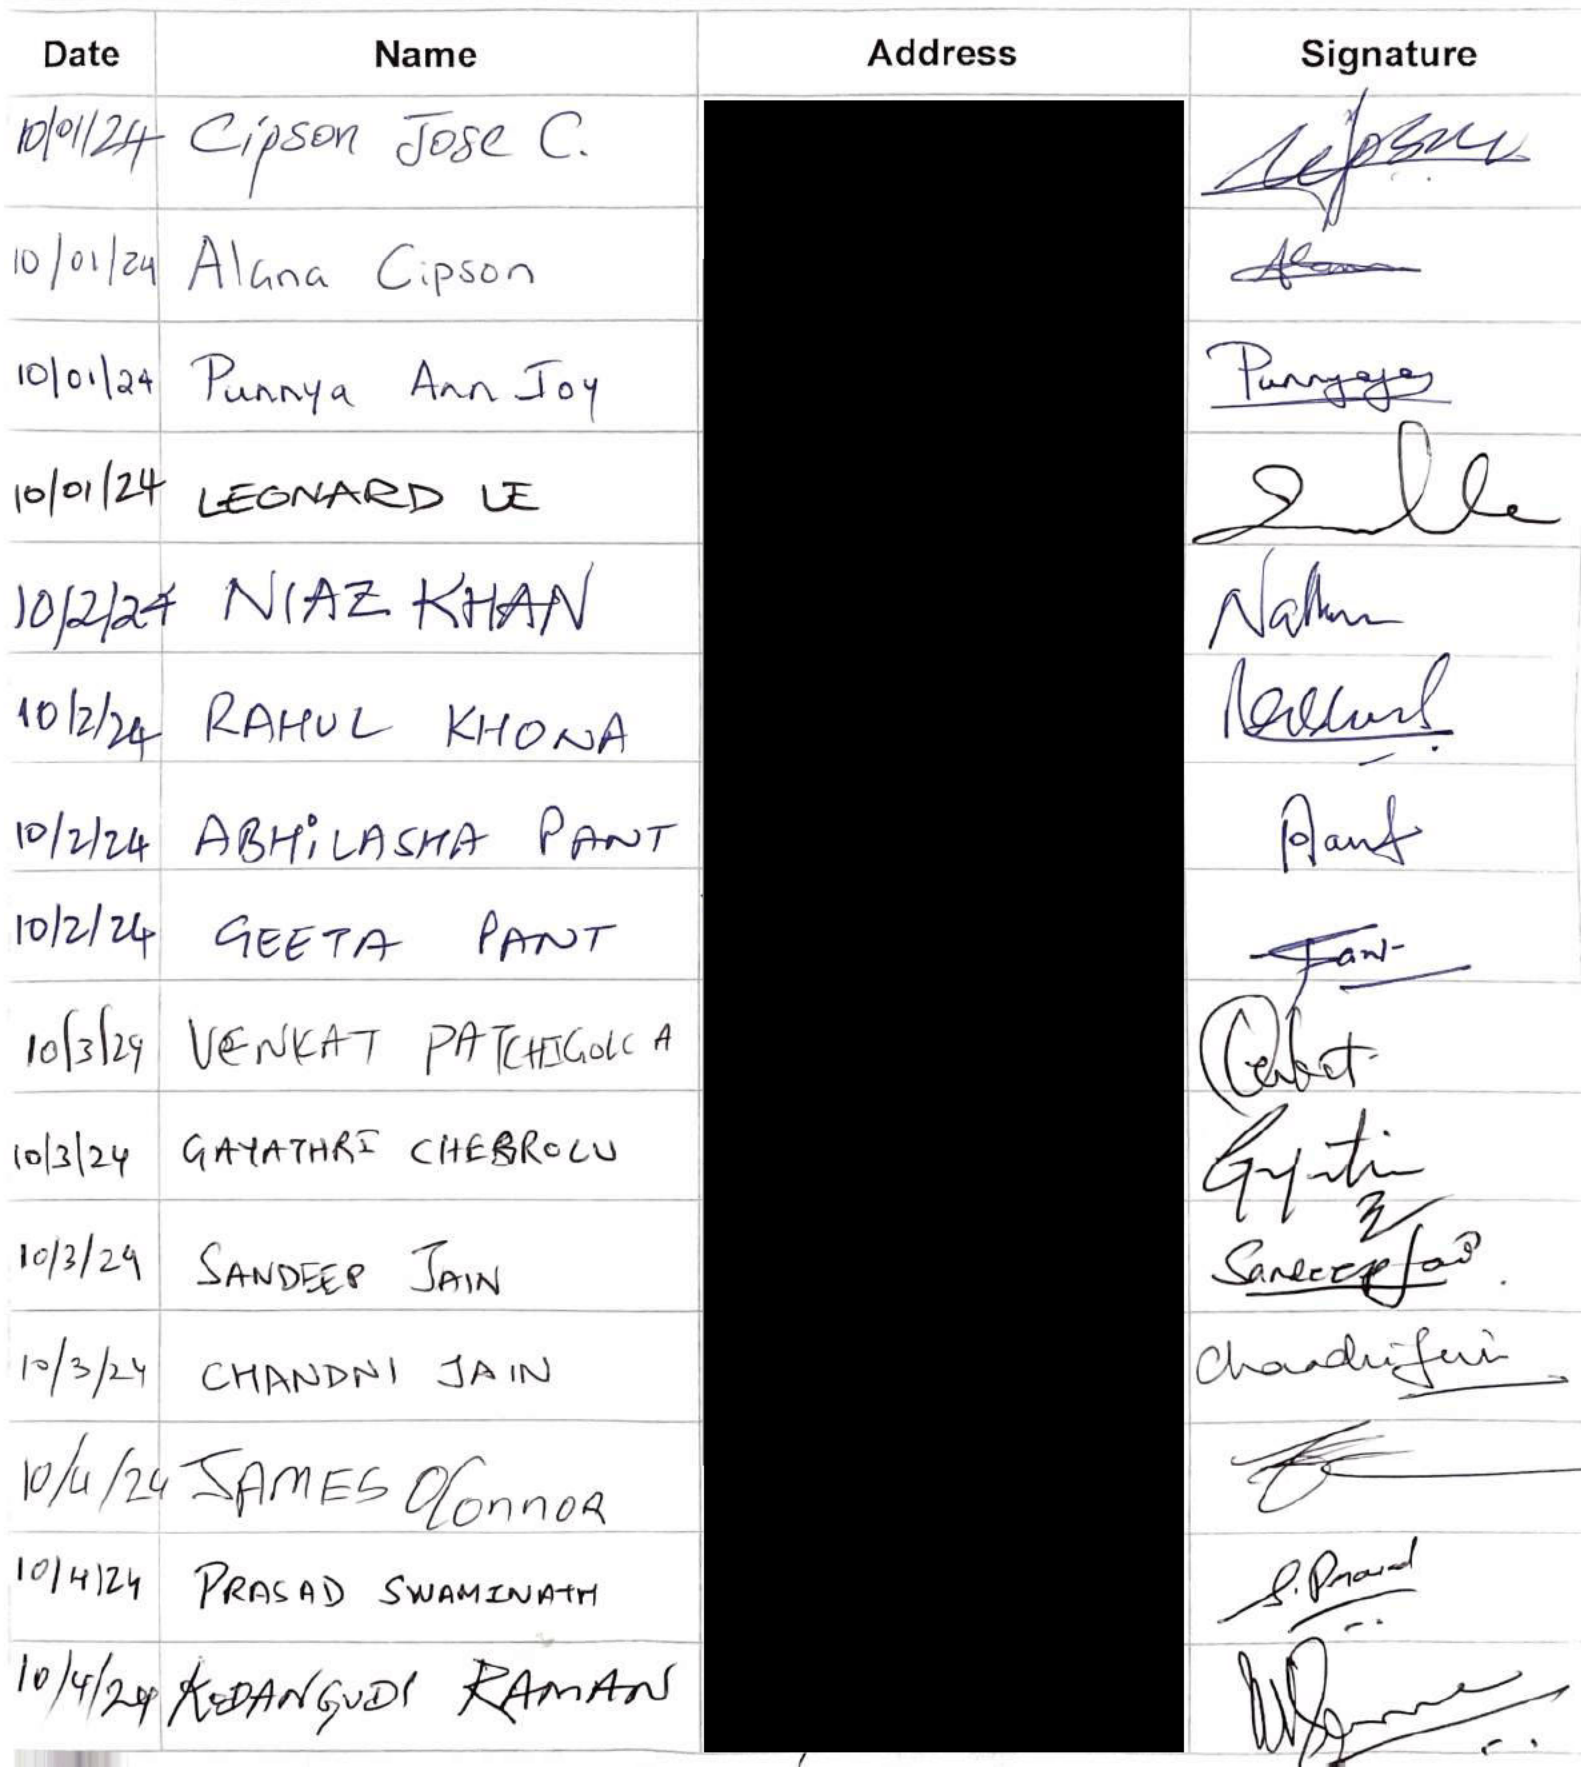 Date Name Address Signature
10/01/24 Cipson Jose C.
10/01/24 Alana Cipson
10/01/24 Punnya Ann Joy Punnya
10/01/24 LEONARD LE
10/2/24 NIAZ KHAN
10/2/24 RAHUL KHONA
10/2/24 ABHiLASHA PANT Pant
10/2/24 GEETA PANT Pant
10/3/24 VENKAT PATCHIGOLLA
10/3/24 GAYATHRI CHEBROLU
10/3/24 SANDEEP JAIN Sandeep Jain
10/3/24 CHANDNI JAIN Chandni Jain
10/4/24 JAMES O'Connor
10/4/24 PRASAD SWAMINATH S. Prasad
10/4/24 KODANGUDI RAMAN